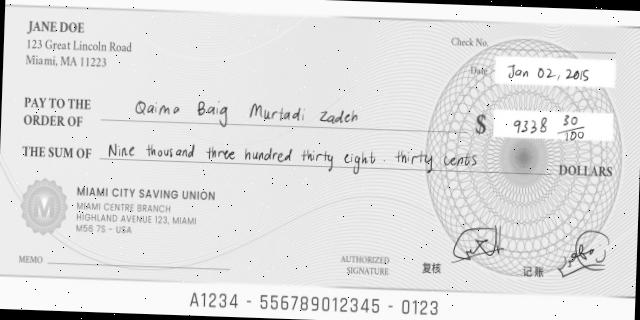 JANE DOE
123 Great Lincoln Road
Miami, MA 11223
Check No.
Date Jan 02, 2015
PAY TO THE ORDER OF Qaima Baig Murtadi Zadeh
$ 9338 30/100
THE SUM OF Nine thousand three hundred thirty eight . thirty cents DOLLARS
M
MIAMI CITY SAVING UNION
MIAMI CENTRE BRANCH
HIGHLAND AVENUE 123, MIAMI
M56 7S - USA
MEMO
AUTHORIZED SIGNATURE
复核
记账
A1234 - 556789012345 - 0123